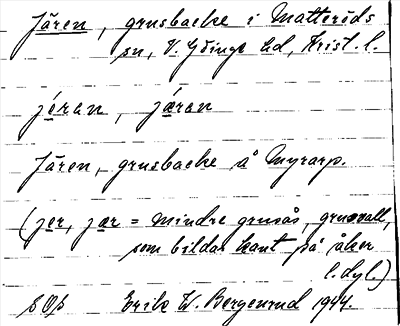 Jären, grusbacke i Matteröds
sn, V. Göinge hd, Krist. l.
jéran, jǽran
Jären, grusbacke å Myrarp.
(jer, jær = mindre grusås, grusvall,
som bildar kant på åker
l. dyl.)
Erik W. Bergenrud 1944.